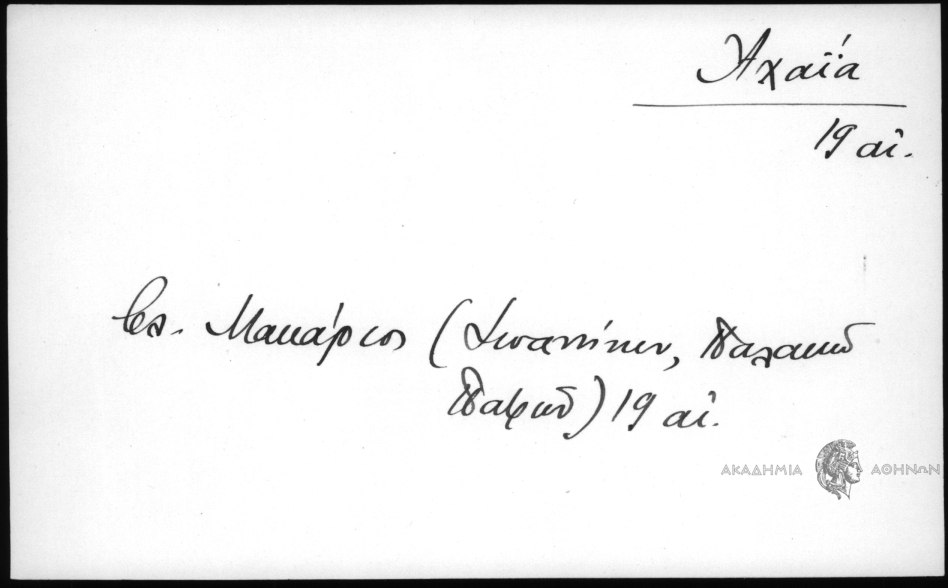 Ἀχαΐα
19 αἰ.
βλ. Μακάριος (Ἰωαννίνων, Παλαιῶν
Πατρῶν) 19 αἰ.
ΑΚΑΔΗΜΙΑ ΑΘΗΝΩΝ